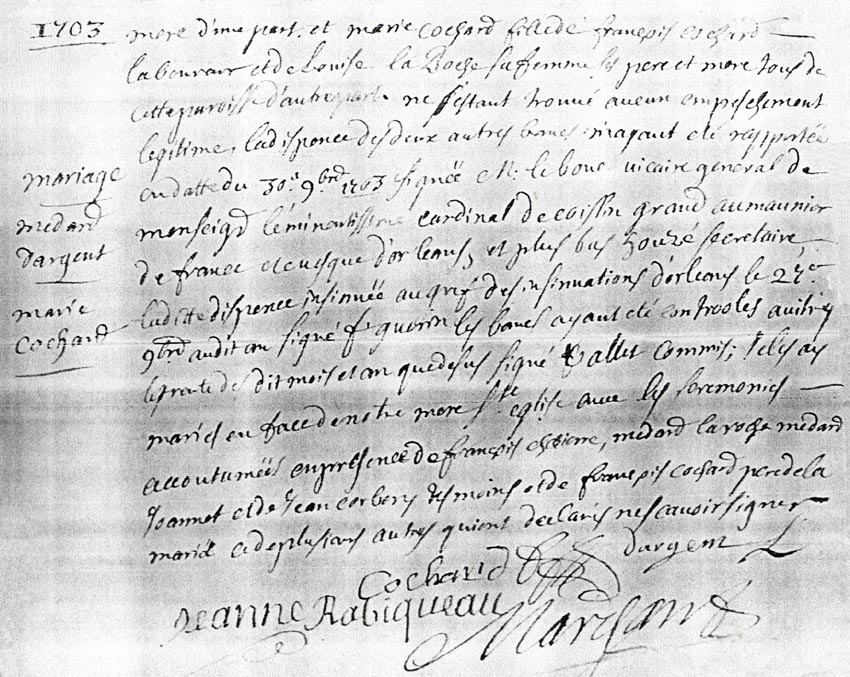 1703
mere d'une part. et marie Cochard fille de françois Cochard
laboureur et de Louise la Roche sa femme ses pere et mere tous de
cette paroisse d'autre part. ne s'estant trouvé aucun empeschement
legitime, la dispence des deux autres bancs m'ayant eté rapportée
en datte du 30e 9bre 1703 signée M. le bouc vicaire général de
monseigr l'éminentissime cardinal de coislin grand aumaunier
de france et evesque d'orleans, et plus bas secretaire
laditte dispence insinuée au gref des insinuations d'orleans le
9bre audit an signé fr guerin les bancs ayant eté controoles a
le des dit mois et an que dessus signé vallet commis; Je les ay
mariés en face de notre mere ste eglise avec les seremonies
accoutumées en presence de françois , medard la roche medard
Joannet et de Jean tesmoins et de françois Cochard pere de la
mariée et de plusieurs autres qui ont declarés ne scavoir signer
mariage
medard
dargent
marie
Cochard
Cochard dargent
Jeanne Rabiqueau